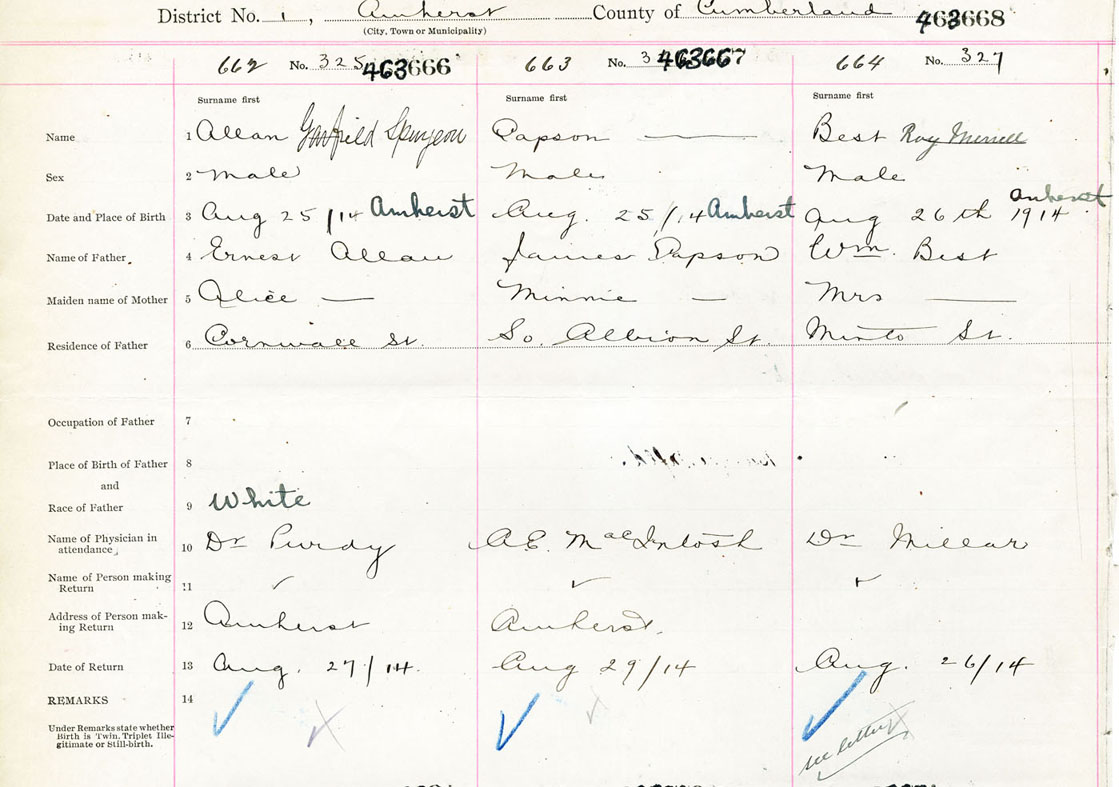 District No. 1, Amherst County of Cumberland 463668
(City, Town or Municipality)
662 No. 325 463666 663 No. 3 463667 664 No. 327
Surname first Surname first Surname first
Name 1 Allan Garfield Spurgeon Papson — Best Roy Merrill
Sex 2 Male Male Male
Amherst
Date and Place of Birth 3 Aug 25/14 Amherst Aug. 25/14 Amherst Aug 26th 1914
Name of Father 4 Ernest Allan James Papson Wm. Best
Maiden name of Mother 5 Alice — Minnie — Mrs —
Residence of Father 6 Cornwall St. So. Albion St. Minto St.
Occupation of Father 7
Place of Birth of Father 8
and
Race of Father 9 White
Name of Physician in
attendance 10 Dr Purdy A.E. MacIntosh Dr Millar
Name of Person making
Return 11 ✓ ✓ ✓
Address of Person mak-
ing Return 12 Amherst Amherst.
Date of Return 13 Aug. 27/14. Aug 29/14 Aug. 26/14
REMARKS 14 ✓ ✓ ✓
Under Remarks state whether
Birth is Twin, Triplet Ille-
gitimate or Still-birth.
see letter